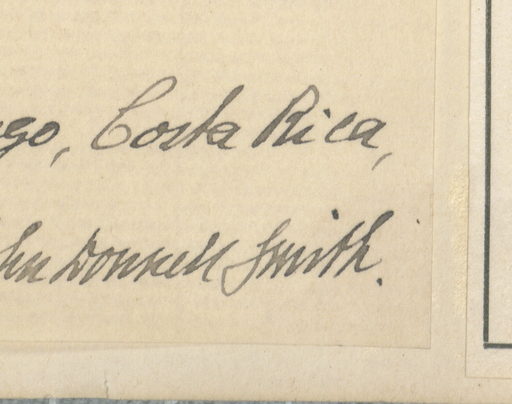 go, Costa Rica,
hn Donnell Smith.